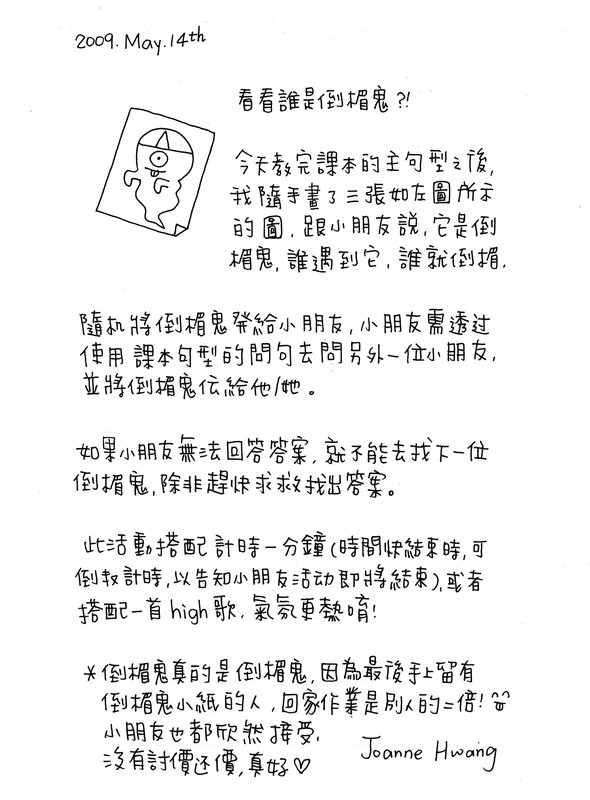 2009. May. 14th
看看誰是倒楣鬼?!
今天教完課本的主句型之後,
我隨手畫了三張如左圖所示
的圖,跟小朋友說,它是倒
楣鬼,誰遇到它,誰就倒楣.
隨机將倒楣鬼発給小朋友,小朋友需透过
使用課本句型的問句去問另外一位小朋友,
並將倒楣鬼伝給他/她。
如果小朋友無法回答答案,就不能去找下一位
倒楣鬼,除非趕快求救找出答案。
此活動搭配計時一分鐘(時間快結束時,可
倒数計時,以告知小朋友活动即將結束),或者
搭配一首high歌,氣氛更熱唷!
*倒楣鬼真的是倒楣鬼,因為最後手上留有
倒楣鬼小紙的人,回家作業是別人的二倍!
小朋友也都欣然接受,
沒有討價还價,真好♡
Joanne Hwang